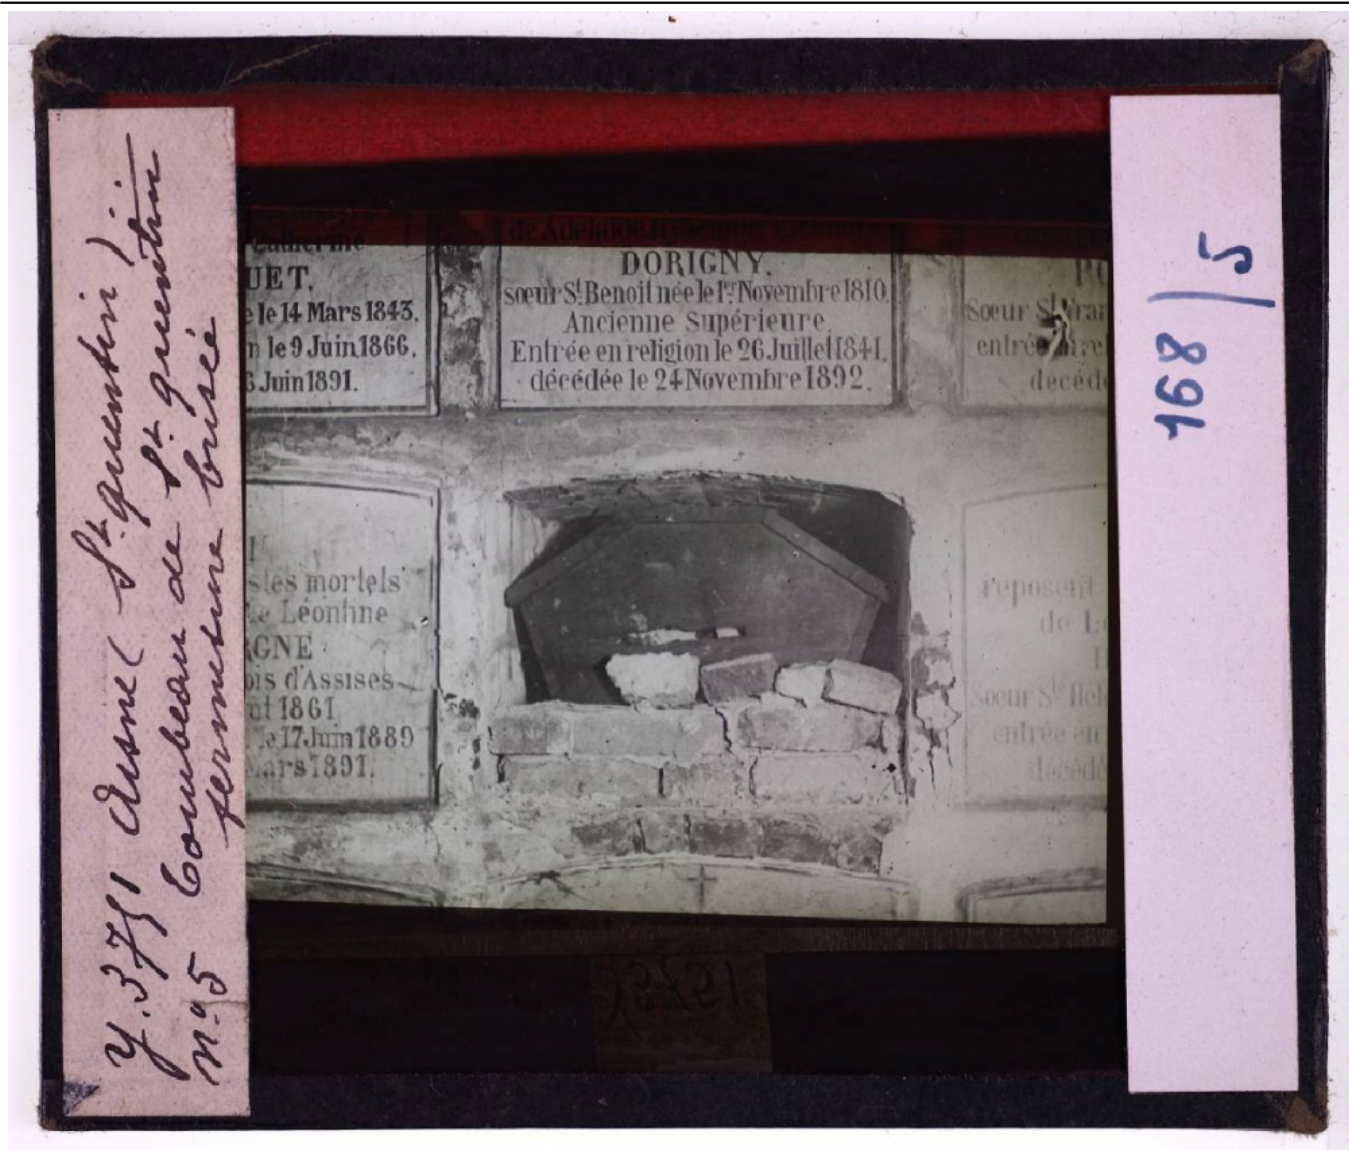 y. 3751 Aisne ( St quentin ) :
n.º 5 Tombeau de St quentin
fermeture brisée
Catherine
UET.
e le 14 Mars 1843.
n le 9 Juin 1866.
3 Juin 1891.
de Adélaïde Hyacinthe Eléonore
DORIGNY.
sœur St. Benoit née le 1er Novembre 1810.
Ancienne Supérieure
Entrée en religion le 26 Juillet 1841.
décédée le 24 Novembre 1892.
Sœur St
entrée
décéd
stes mortels
e Léontine
GNE
ois d'Assises
1861
le 17 Juin 1889
Mars 1891.
reposent
de L
Sœur Ste Hél
entrée en
décéd
168/5
Y3751